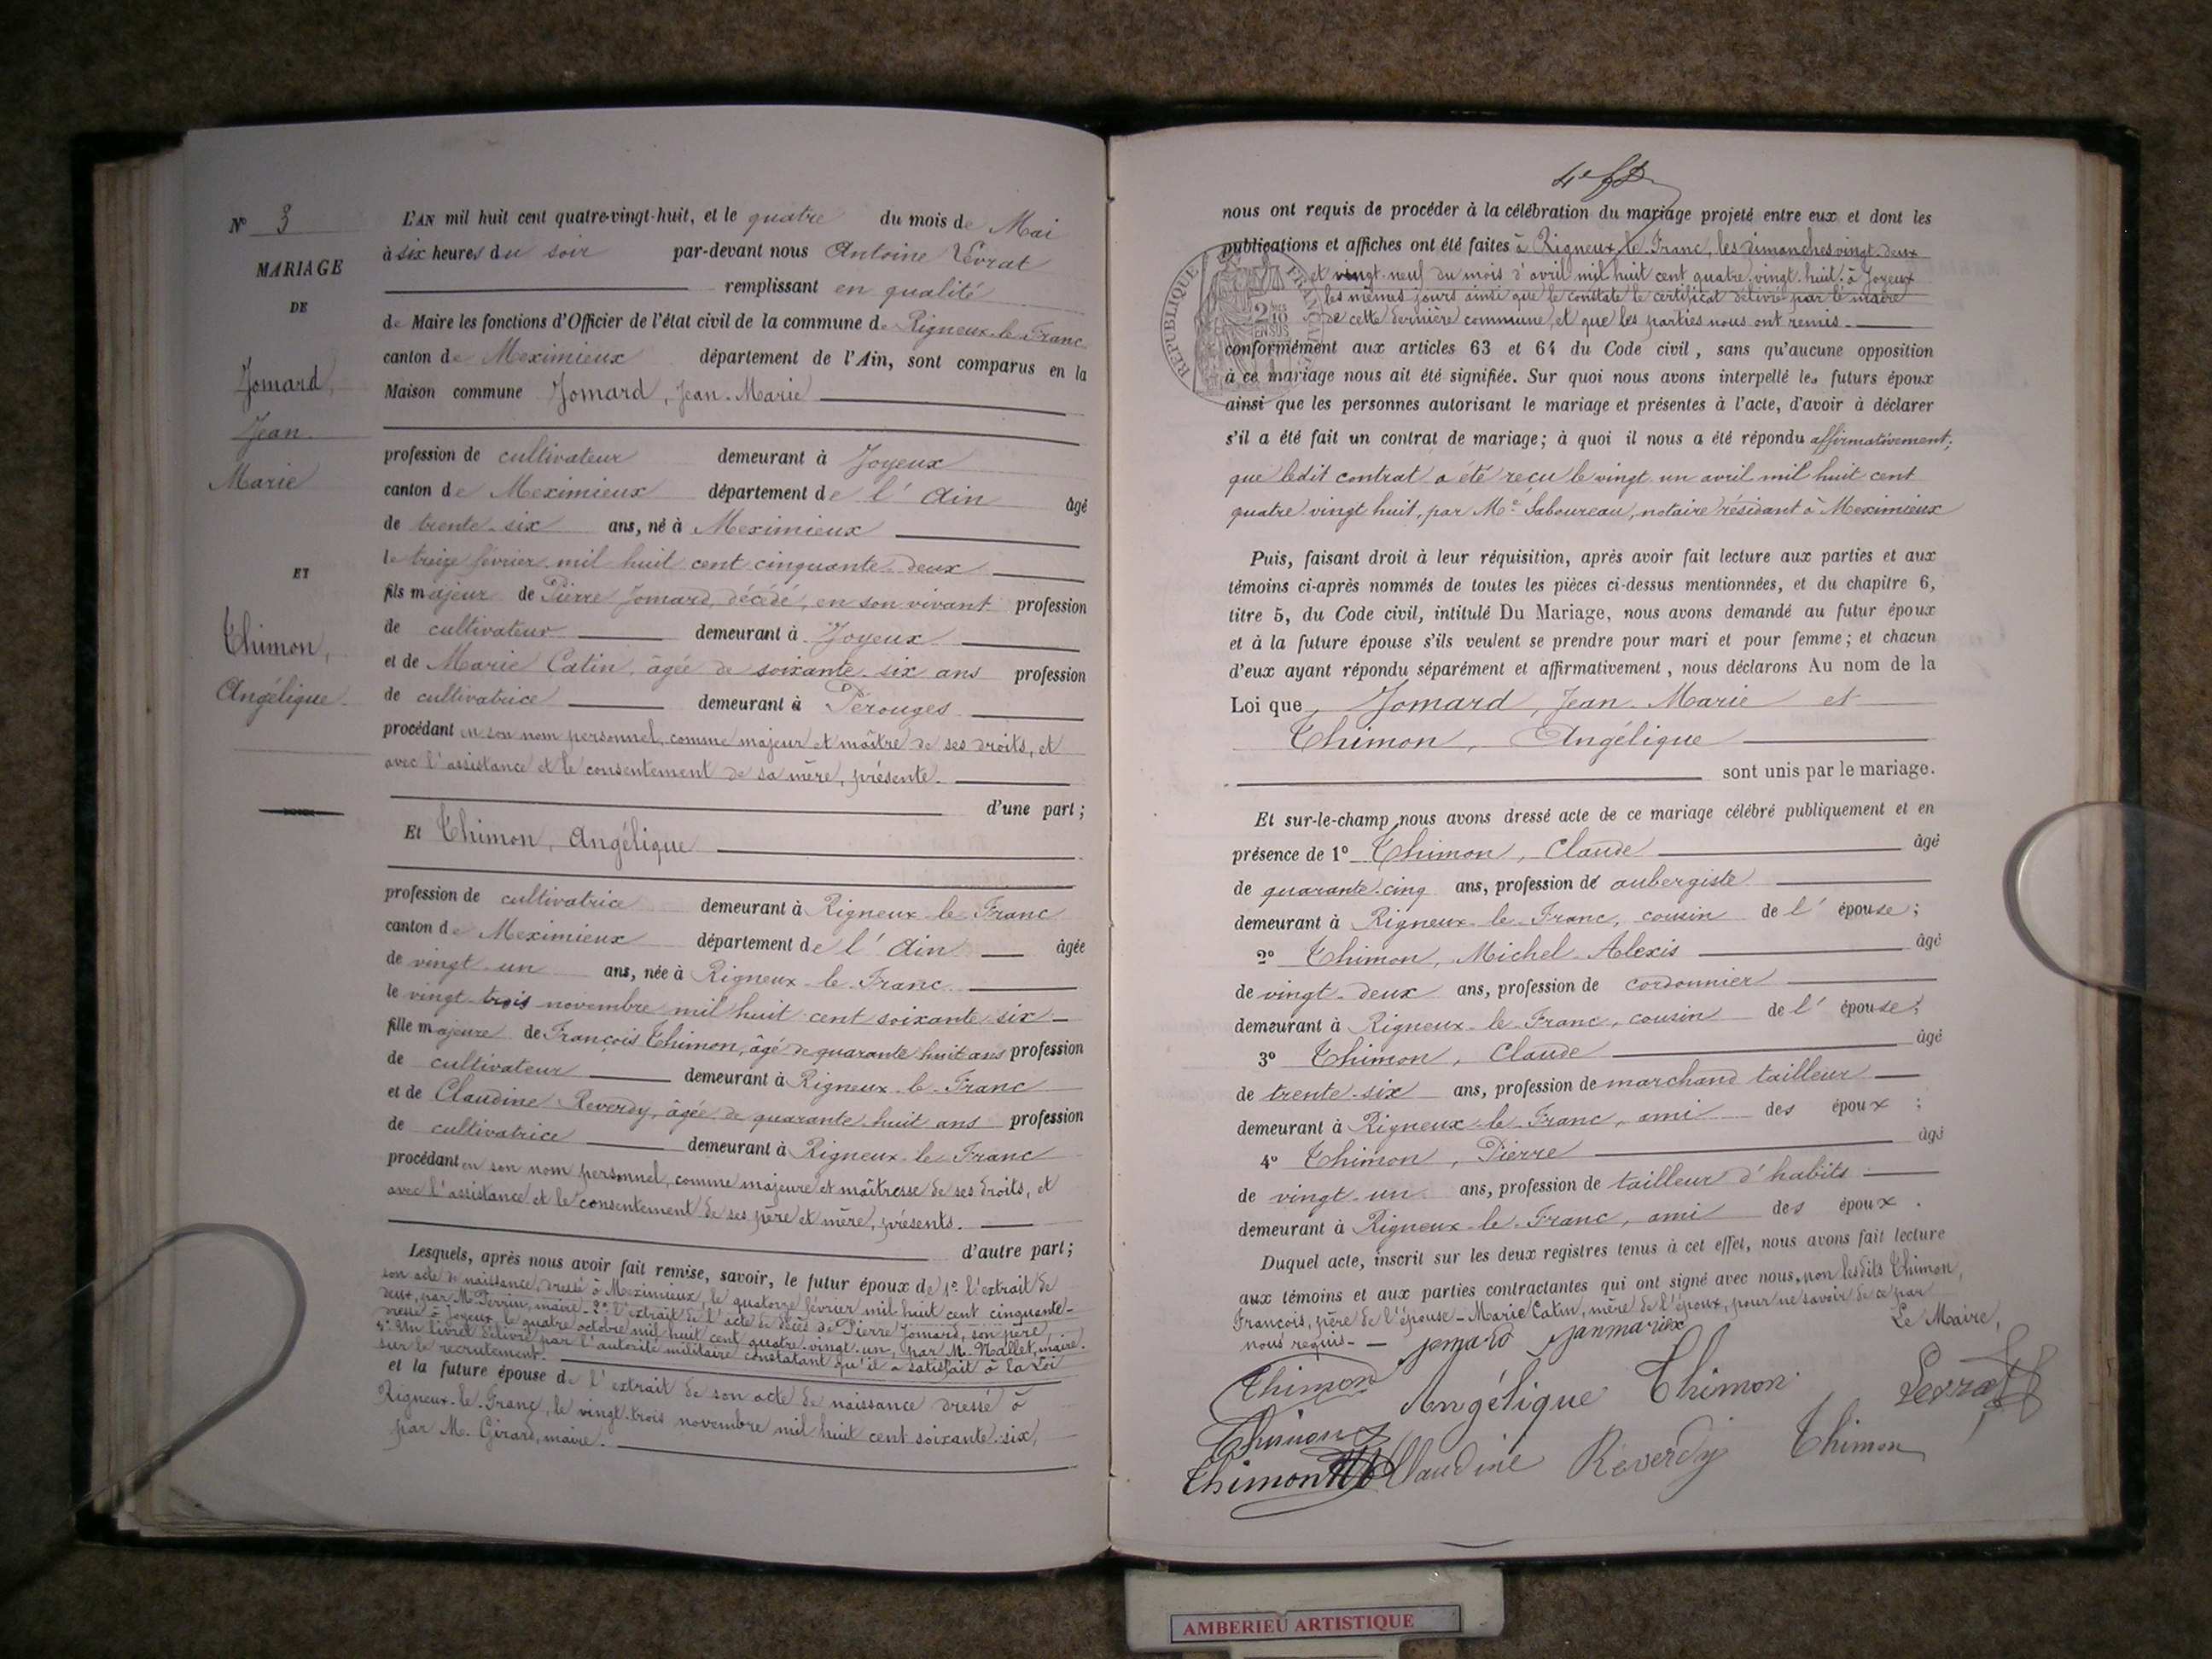 N° 3
MARIAGE
DE
Jomard,
Jean
Marie
ET
Thimon,
Angélique
L'AN mil huit cent quatre-vingt-huit, et le quatre du mois de Mai
à six heures du soir par-devant nous Antoine Levrat
remplissant en qualité
de Maire les fonctions d'Officier de l'état civil de la commune de Rigneux-le-Franc
canton de Meximieux département de l'Ain, sont comparus en la
Maison commune Jomard, Jean-Marie
profession de cultivateur demeurant à Joyeux
canton de Meximieux département de l'Ain âgé
de trente-six ans, né à Meximieux
le treize février mil huit cent cinquante-deux
fils majeur de Pierre Jomard, décédé, en son vivant profession
de cultivateur demeurant à Joyeux
et de Marie Catin, âgée de soixante-six ans profession
de cultivatrice demeurant à Pérouges
procédant en son nom personnel, comme majeur et maître de ses droits, et
avec l'assistance et le consentement de sa mère, présente.
d'une part;
Et Thimon, Angélique
profession de cultivatrice demeurant à Rigneux-le-Franc
canton de Meximieux département de l'Ain âgée
de vingt-un ans, née à Rigneux-le-Franc
le vingt-trois novembre mil huit cent soixante-six
fille majeure de François Thimon, âgé de quarante-huit ans profession
de cultivateur demeurant à Rigneux-le-Franc
et de Claudine Reverdy, âgée de quarante-huit ans profession
de cultivatrice demeurant à Rigneux-le-Franc
procédant en son nom personnel, comme majeure et maîtresse de ses droits, et
avec l'assistance et le consentement de ses père et mère, présents.
d'autre part;
Lesquels, après nous avoir fait remise, savoir, le futur époux de 1° l'extrait de
son acte de naissance, dressé à Meximieux, le quatorze février mil huit cent cinquante-
deux, par M. Perrin, maire - 2° l'extrait de l'acte de décès de Pierre Jomard, son père,
dressé à Joyeux, le quatre octobre mil huit cent quatre-vingt-un, par M. Mallet, maire.
Un livret délivré par l'autorité militaire constatant qu'il a satisfait à la loi
sur le recrutement.
et la future épouse de l'extrait de son acte de naissance dressé à
Rigneux-le-Franc, le vingt-trois novembre mil huit cent soixante-six,
par M. Girard, maire.
nous ont requis de procéder à la célébration du mariage projeté entre eux et dont les
publications et affiches ont été faites à Rigneux-le-Franc, les dimanches vingt-deux
et vingt-neuf du mois d'avril mil huit cent quatre-vingt-huit, à Joyeux
les mêmes jours ainsi que le constate le certificat délivré par le maire
de cette dernière commune, et que les parties nous ont remis.
conformément aux articles 63 et 64 du Code civil, sans qu'aucune opposition
à ce mariage nous ait été signifiée. Sur quoi nous avons interpellé les futurs époux
ainsi que les personnes autorisant le mariage et présentes à l'acte, d'avoir à déclarer
s'il a été fait un contrat de mariage; à quoi il nous a été répondu affirmativement;
que ledit contrat a été reçu le vingt-un avril mil huit cent
quatre-vingt-huit, par Me Saboureau, notaire résidant à Meximieux
Puis, faisant droit à leur réquisition, après avoir fait lecture aux parties et aux
témoins ci-après nommés de toutes les pièces ci-dessus mentionnées, et du chapitre 6,
titre 5, du Code civil, intitulé Du Mariage, nous avons demandé au futur époux
et à la future épouse s'ils veulent se prendre pour mari et pour femme; et chacun
d'eux ayant répondu séparément et affirmativement, nous déclarons Au nom de la
Loi que Jomard, Jean-Marie et
Thimon, Angélique
sont unis par le mariage.
Et sur-le-champ nous avons dressé acte de ce mariage célébré publiquement et en
présence de 1° Thimon, Claude âgé
de quarante-cinq ans, profession de aubergiste
demeurant à Rigneux-le-Franc, cousin de l'épouse;
2° Thimon, Michel-Alexis âgé
de vingt-deux ans, profession de cordonnier
demeurant à Rigneux-le-Franc, cousin de l'épouse;
3° Thimon, Claude âgé
de trente-six ans, profession de marchand tailleur
demeurant à Rigneux-le-Franc, ami des époux;
4° Thimon, Pierre âgé
de vingt-un ans, profession de tailleur d'habits
demeurant à Rigneux-le-Franc, ami des époux.
Duquel acte, inscrit sur les deux registres tenus à cet effet, nous avons fait lecture
aux témoins et aux parties contractantes qui ont signé avec nous, non lesdits Thimon,
François, père de l'épouse - Marie Catin, mère de l'époux, pour ne savoir de ce par
nous requis.
Le Maire,
jomard janmariex
Thimon Angélique Thimon Levrat
Thimon
Thimon Claudine Reverdy Thimon
REPUBLIQUE FRANÇAISE
2/10 EN SUS
AMBERIEU ARTISTIQUE